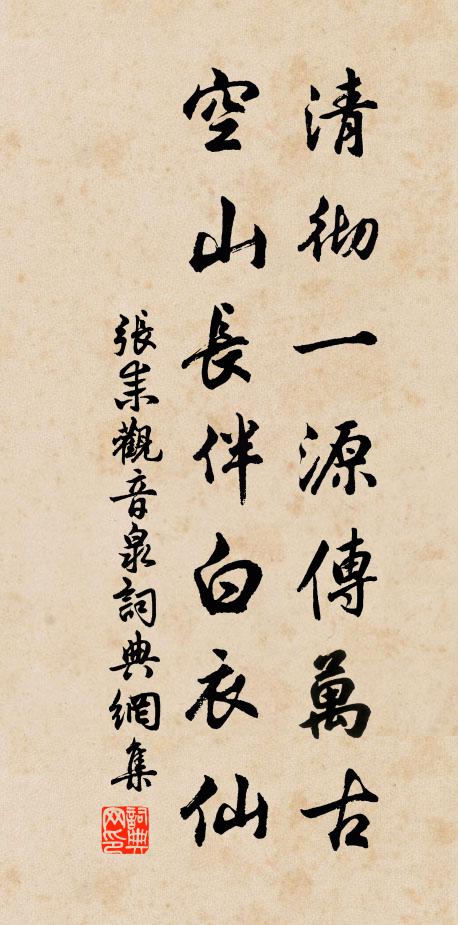 清彻一源傳萬古
空山長伴白衣仙
張耒觀音泉詞典網集
詞典網印